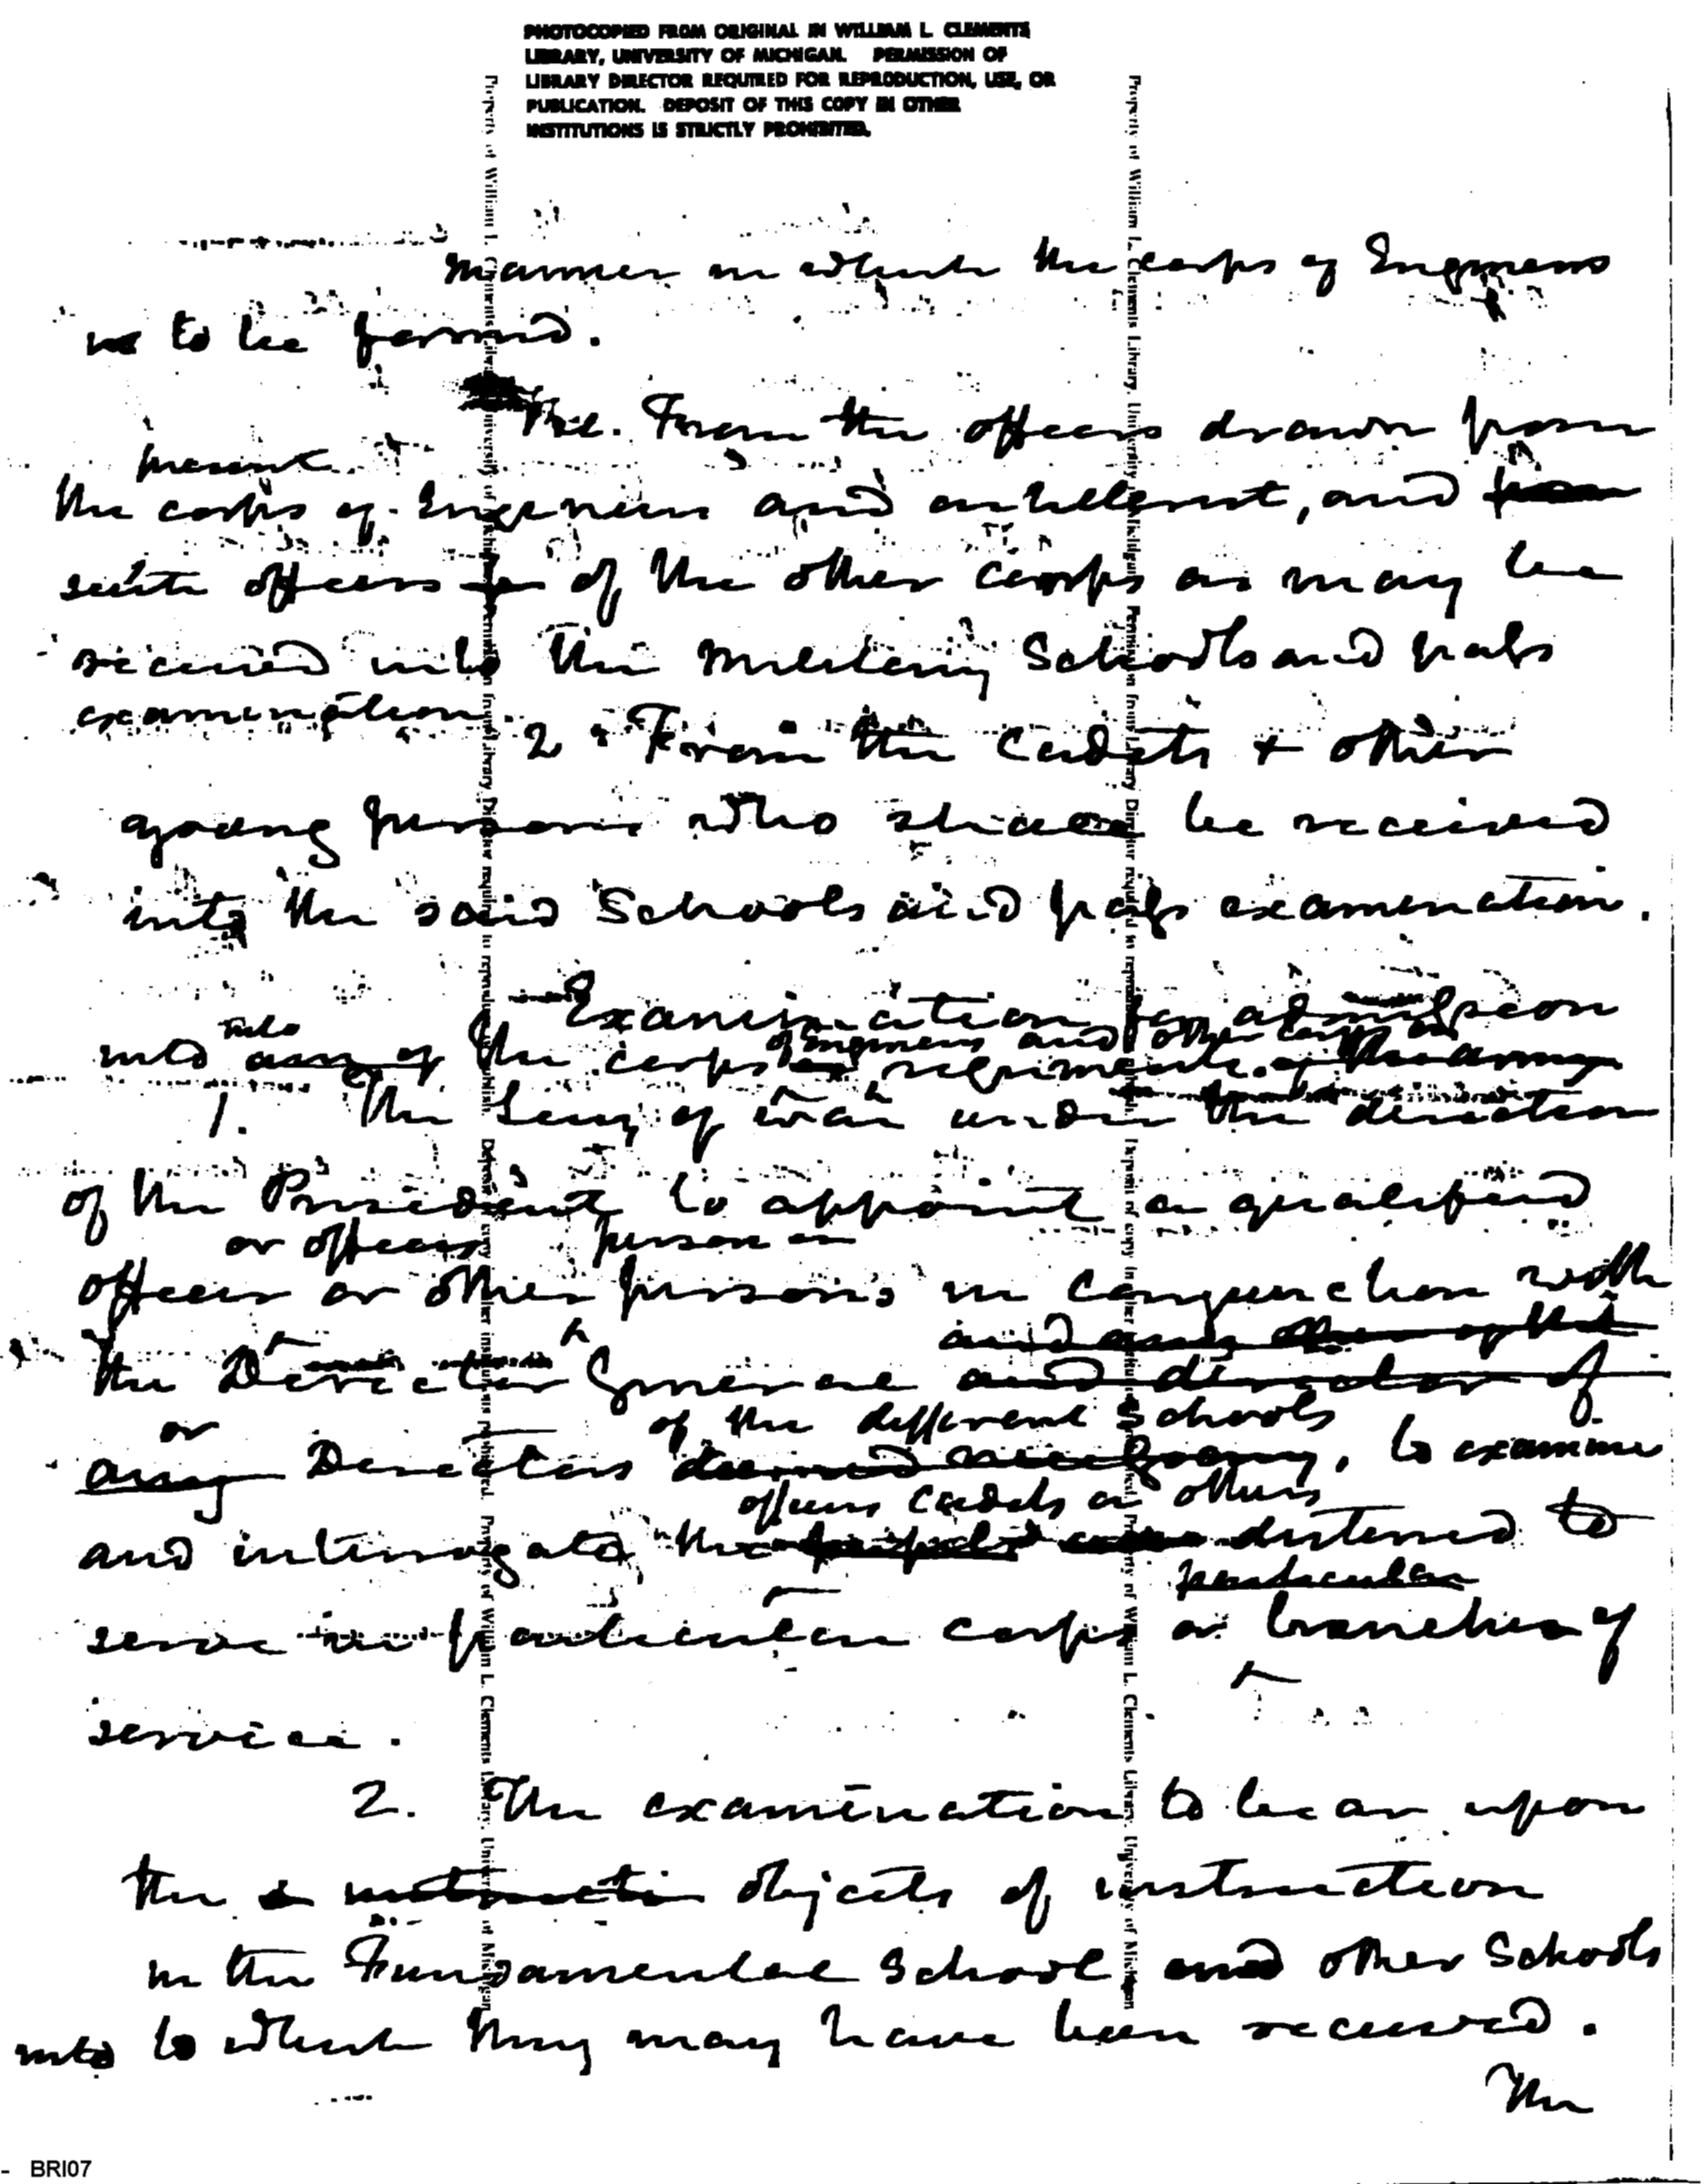 PHOTOCOPIED FROM ORIGINAL IN WILLIAM L. CLEMENTS
LIBRARY, UNIVERSITY OF MICHIGAN. PERMISSION OF
LIBRARY DIRECTOR REQUIRED FOR REPRODUCTION, USE, OR
PUBLICATION. DEPOSIT OF THIS COPY IN OTHER
INSTITUTIONS IS STRICTLY PROHIBITED.
Manner in which the corps of Engineers
is to be formed.
From the officers drawn from
present
the corps of Engineers and artillerist, and from
such officers of the other corps as may be
received into the military Schools and pass
examination
2. From the Cadets & other
young persons who shall be received
into the said Schools and pass examination.
Examination for admission
into
of Engineers and other corps or
into any of the corps or regiments of the army
1. The Secy of war under the direction
of the President to appoint a qualified
or officers person or
officer or other persons in conjunction with
the Director General and director of
or of the different Schools
any Directors deemed necessary, to examine
officers cadets or others
and interrogate the destined to
particular
serve in particular corps or branches of
service.
2. The examination to bear upon
the instruction objects of instruction
in the Fundamental School and other Schools
into to which they may have been received.
The
- BRI07